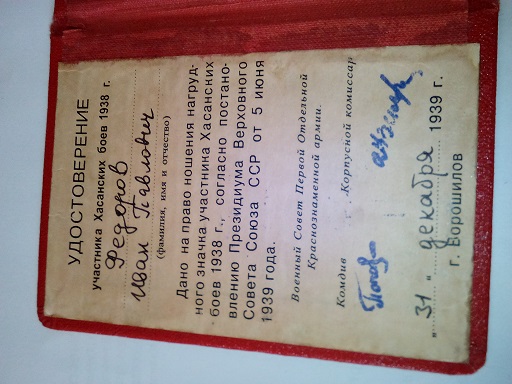 УДОСТОВЕРЕНИЕ
участника Хасанских боев 1938 г.
Федоров
Иван Павлович
(фамилия, имя и отчество)
Дано на право ношения нагруд-
ного значка участника Хасанских
боев 1938 г., согласно постано-
влению Президиума Верховного
Совета Союза ССР от 5 июня
1939 года.
Военный Совет Первой Отдельной
Краснознаменной армии.
Комдив Корпусной комиссар
"31" декабря 1939 г.
г. Ворошилов